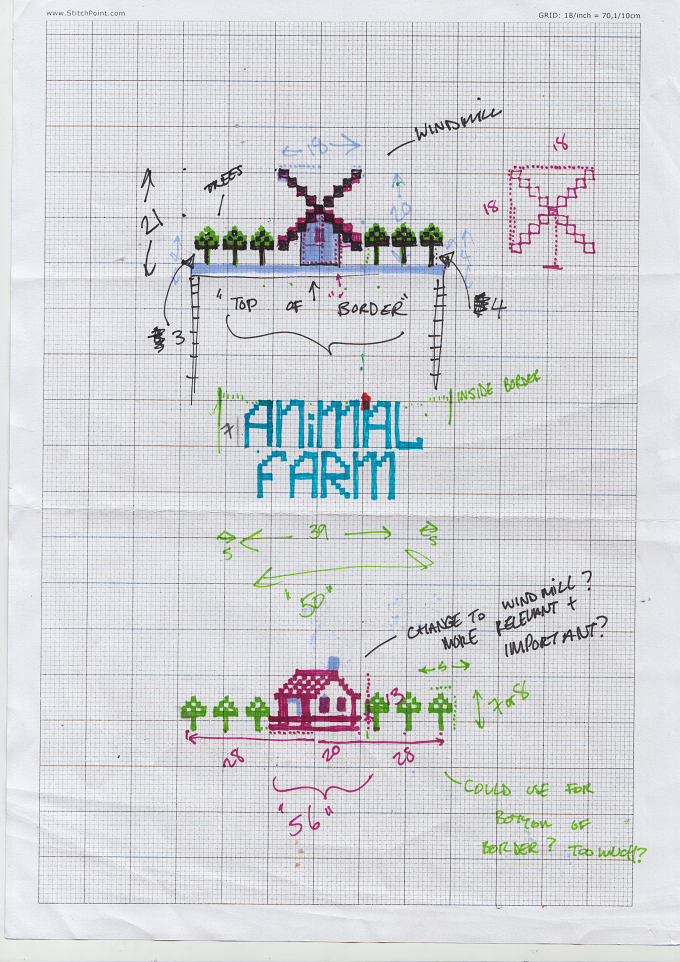 www.StitchPoint.com
GRID: 18/inch = 70,1/10cm
WINDMILL
18
18
TREES
21
20
18
"TOP OF BORDER"
3
4
INSIDE BORDER
7
ANiMAL
FARM
5
39
5
"50"
CHANGE TO WINDMILL?
MORE RELEVANT +
IMPORTANT?
5
13
7 or 8
28
20
28
"56"
COULD USE FOR
BOTTOM OF
BORDER? TOO MUCH?